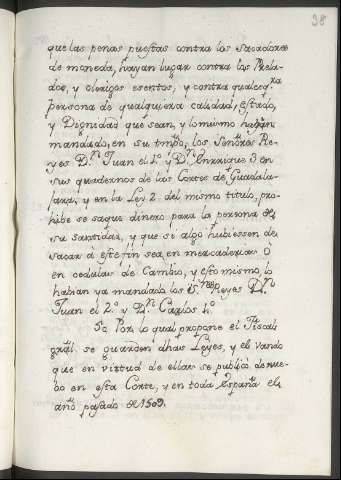 38
que las penas puestas contra los sacadores
de moneda, hayan lugar contra los Prela-
dos, y clerigos esentos, y contra qualcq.ra
persona de qualquiera calidad, estado,
y Dignidad que sean, y lo mismo habian
mandado, en su tmpo, los Señores Re-
yes D.n Juan el 1.º y D.n Enrrique 3 en
sus quadernos de las Cortes de Guadala-
xara, y en la Ley 2. del mismo titulo, pro-
hibe se saque dinero para la persona de
su santidad, y que si algo hubiessen de
sacar a este fin sea, en mercaderias ò
en cedulas de Cambio, y esto mismo, lo
habian ya mandado los S.res Reyes D.n
Juan el 2.º y D.n Carlos 1.º
50 Por lo qual propone el Fiscal
gral. se guarden dhas Leyes, y el vando
que en virtud de ellas se publicó de nue-
bo en esta Corte, y en toda España el
año pasado de 1509.